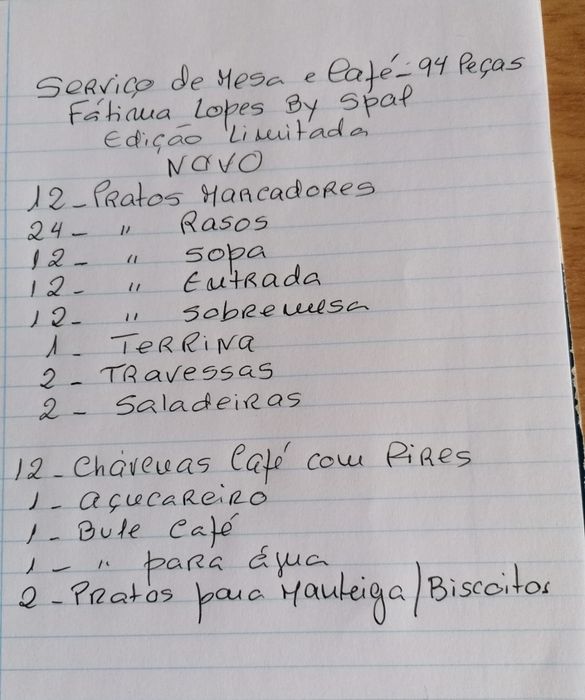 Serviço de Mesa e Café - 94 Peças
Fátima Lopes By Spal
Edição Limitada
NOVO
12 - Pratos Marcadores
24 - " Rasos
12 - " Sopa
12 - " Entrada
12 - " Sobremesa
1 - Terrina
2 - Travessas
2 - Saladeiras
12 - Chávenas Café com Pires
1 - Açucareiro
1 - Bule Café
1 - " para água
2 - Pratos para Manteiga/Biscoitos